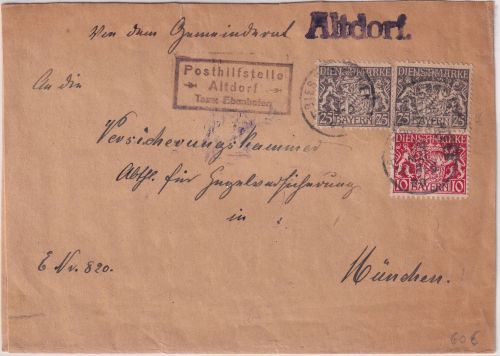 Von dem Gemeinderat Altdorf.
Posthilfstelle
Altdorf
Taxe Ebenhofen
DIENSTMARKE
25 BAYERN 25
DIENSTMARKE
25 BAYERN 25
DIENSTMARKE
10 BAYERN 10
An die
Versicherungskammer
Abthl. für Hagelversicherung
in
E. Nr. 820.
München.
60€